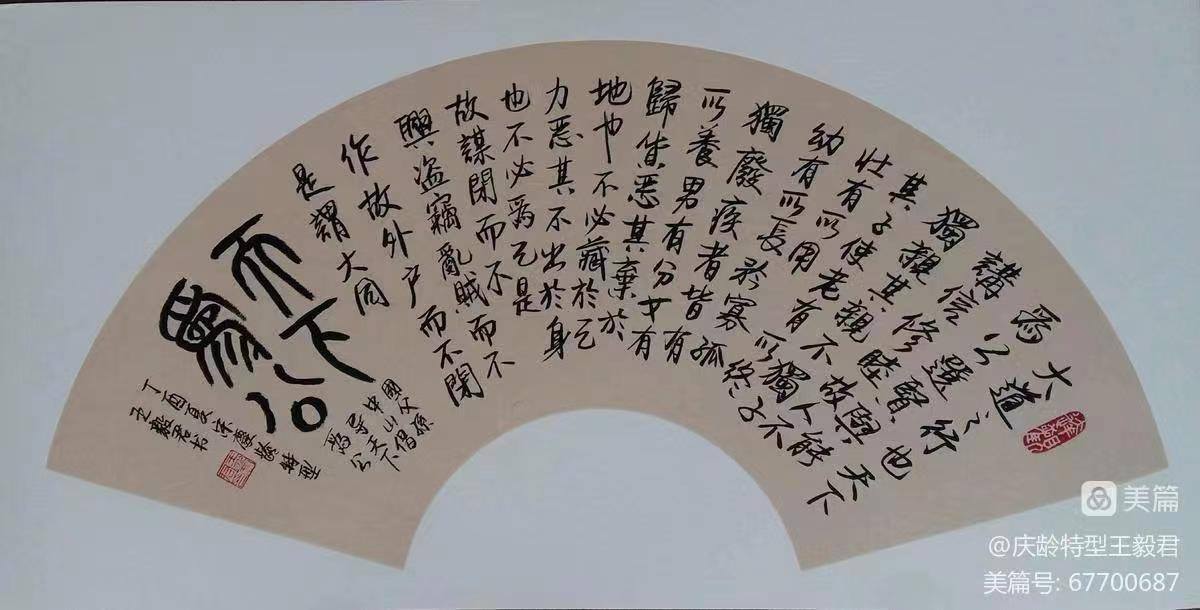 大道之行也天下
為公選賢與能
講信修睦故人不
獨親其親不獨子
其子使老有所終
壯有所用
幼有所長於寡孤
獨廢疾者皆有
所養男有分女有
歸貨惡其棄於
地也不必藏於己
力惡其不出於身
也不必為己是
故謀閉而不
興盜竊亂賊而不
作故外戶而不閉
是謂大同
天下
為公
國父孫
中山倡
導天下
為公
丁酉夏宋慶齡特型
王毅君书
美篇
@庆龄特型王毅君
美篇号: 67700687